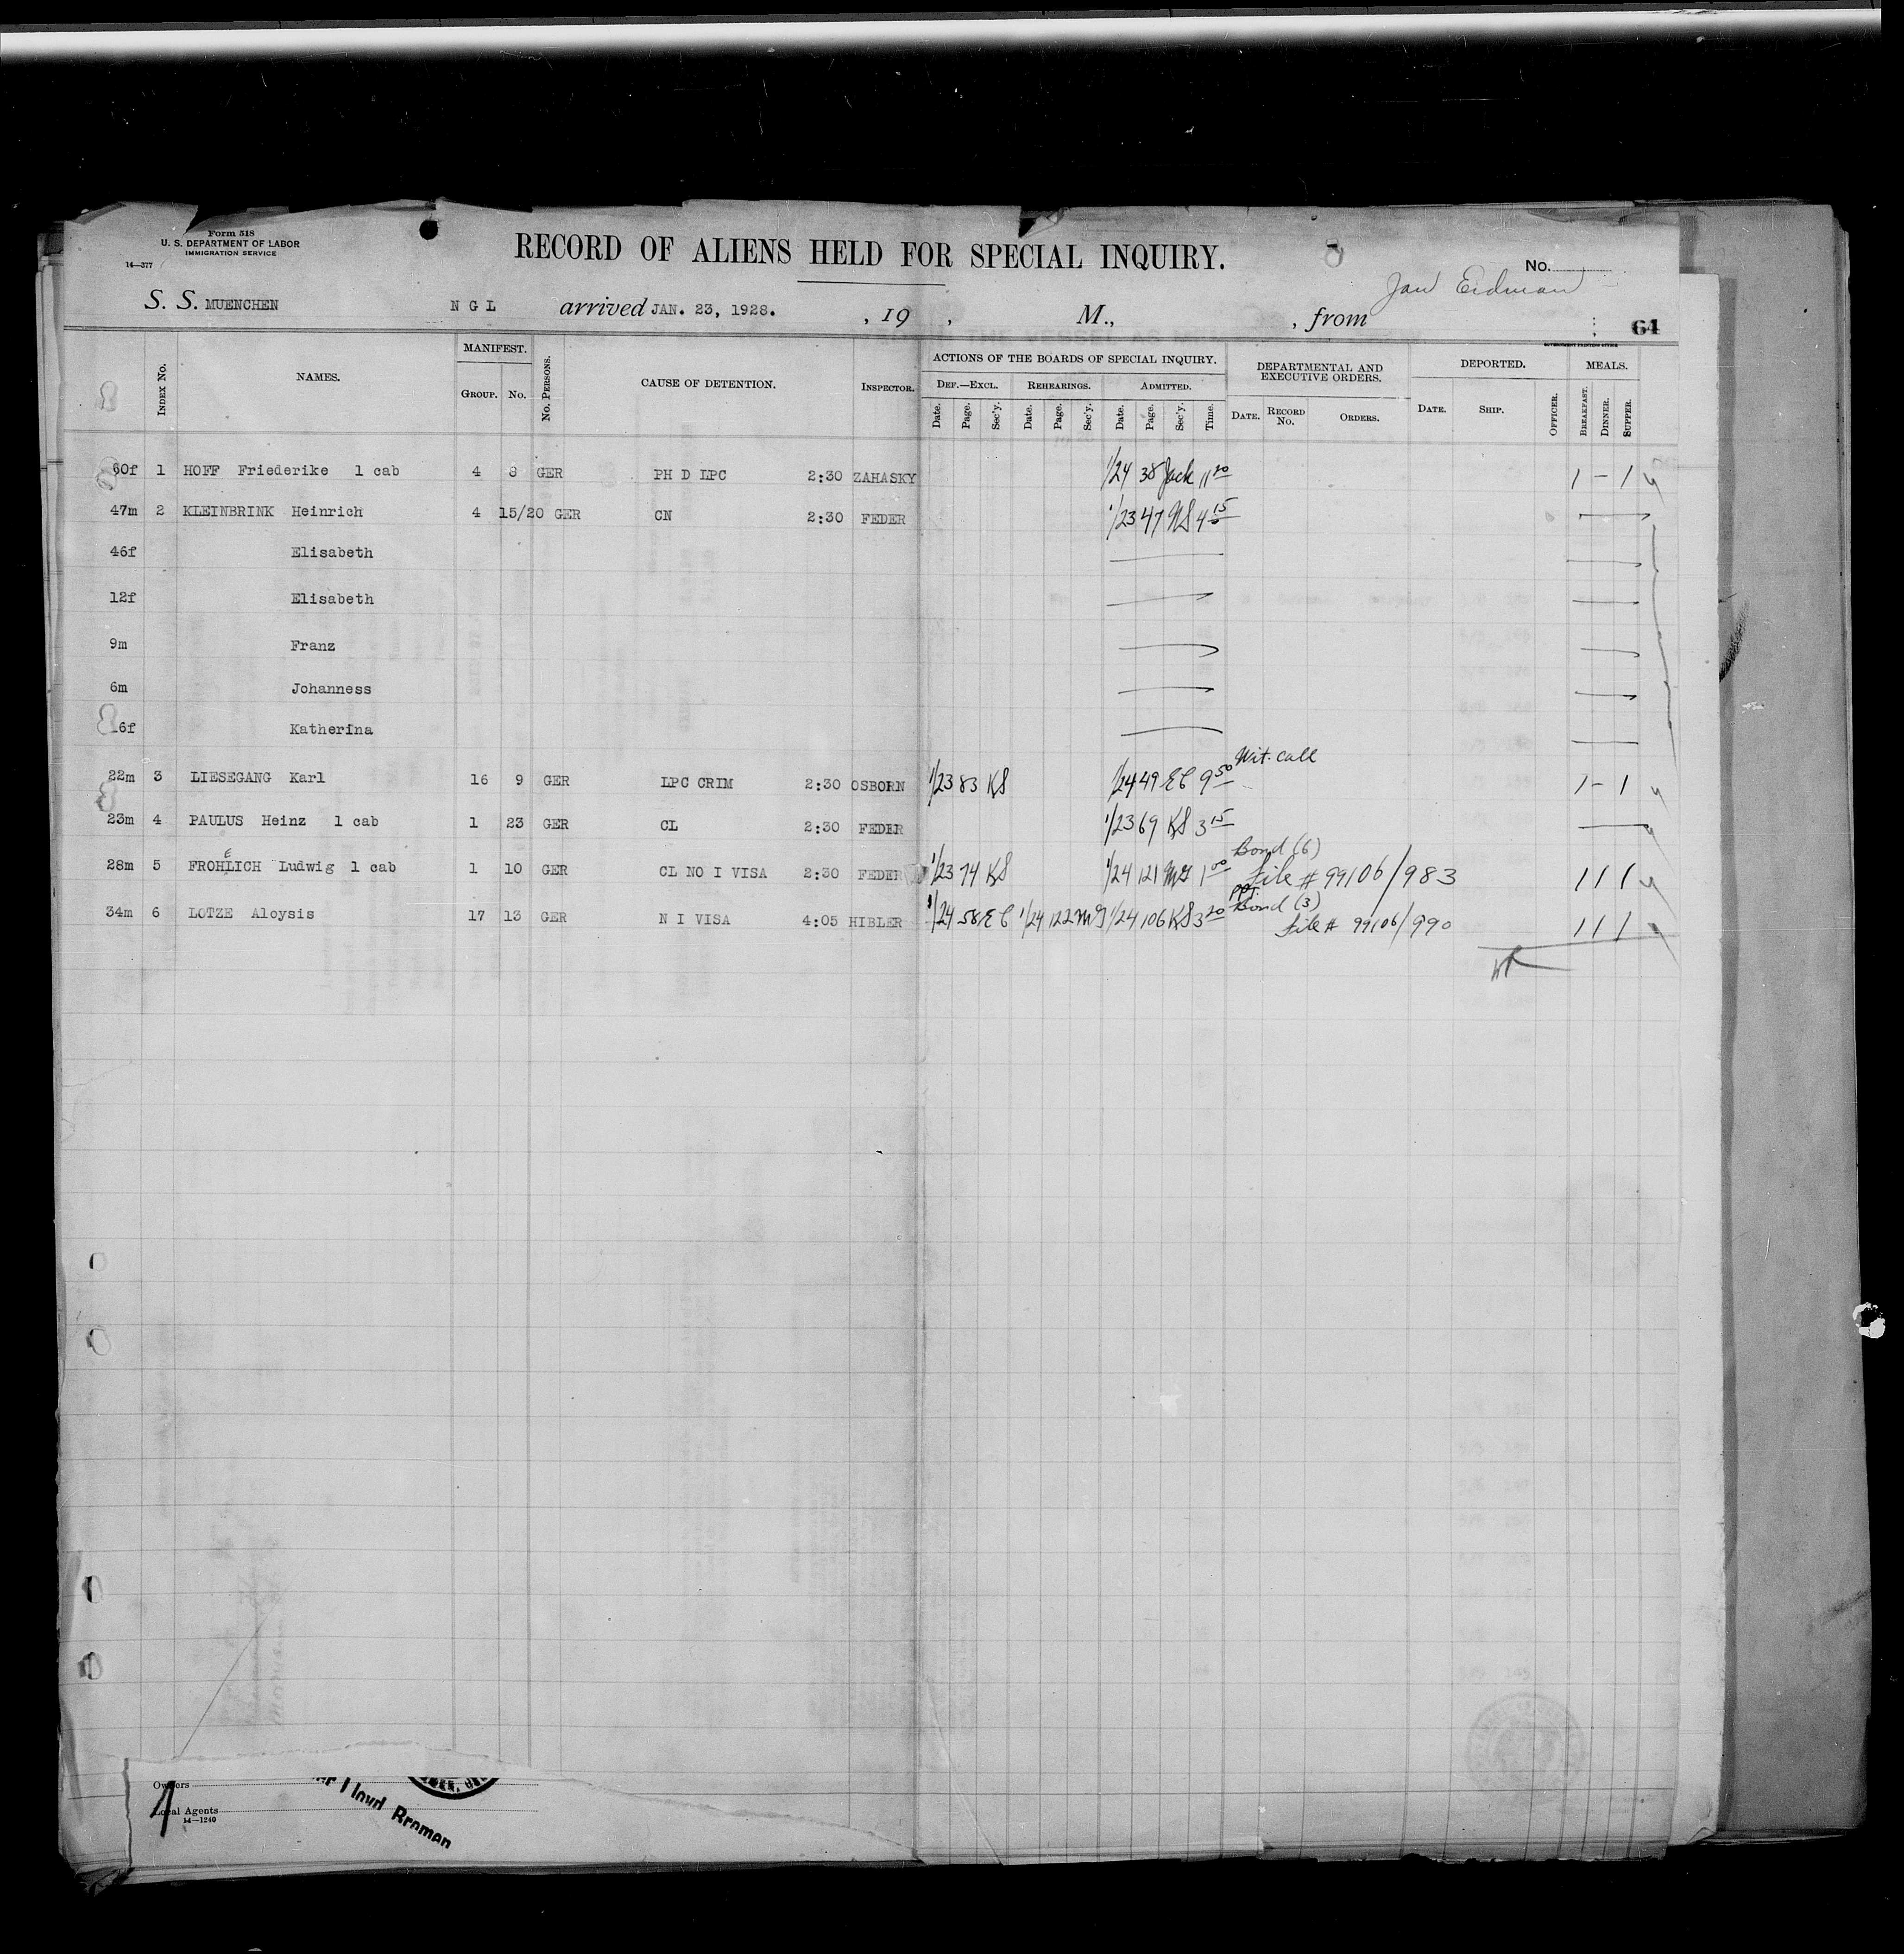 Form 518
U. S. DEPARTMENT OF LABOR
IMMIGRATION SERVICE
14—377
RECORD OF ALIENS HELD FOR SPECIAL INQUIRY.
8
No.
Jan Erdman
S. S. MUENCHEN N G L arrived JAN. 23, 1928. , 19 , M., , from
64
GOVERNMENT PRINTING OFFICE
INDEX No. NAMES. MANIFEST. GROUP. No. No. PERSONS. CAUSE OF DETENTION. INSPECTOR. ACTIONS OF THE BOARDS OF SPECIAL INQUIRY. DEPARTMENTAL AND EXECUTIVE ORDERS. DEPORTED. MEALS.
DEF.—EXCL. REHEARINGS. ADMITTED.
Date. Page. Sec'y. Date. Page. Sec'y. Date. Page. Sec'y. Time. DATE. RECORD No. ORDERS. DATE. SHIP. OFFICER. BREAKFAST. DINNER. SUPPER.
60f 1 HOFF Friederike 1 cab 4 8 GER PH D LPC 2:30 ZAHASKY 1/24 38 Jack 11 20 1 – 1
47m 2 KLEINBRINK Heinrich 4 15/20 GER CN 2:30 FEDER 1/23 47 4 15
46f Elisabeth
12f Elisabeth
9m Franz
6m Johanness
16f Katherina
Wit. call
22m 3 LIESEGANG Karl 16 9 GER LPC CRIM 2:30 OSBORN 1/23 83 KS 1/24 49 EC 9 50 1 – 1
23m 4 PAULUS Heinz 1 cab 1 23 GER CL 2:30 FEDER 1/23 69 KS 3 15
Bond (6)
28m 5 FROHELICH Ludwig 1 cab 1 10 GER CL NO I VISA 2:30 FEDER 1/23 74 KS 1/24 121 MG 1 00 File # 99106/983 1 1 1
ppt.
Bond (3)
34m 6 LOTZE Aloysis 17 13 GER N I VISA 4:05 HIBLER 1/24 58 EC 1/24 122 MG 1/24 106 KS 3 20 File # 99106/990 1 1 1
Owners
Local Agents
14—1240
Lloyd Bremen